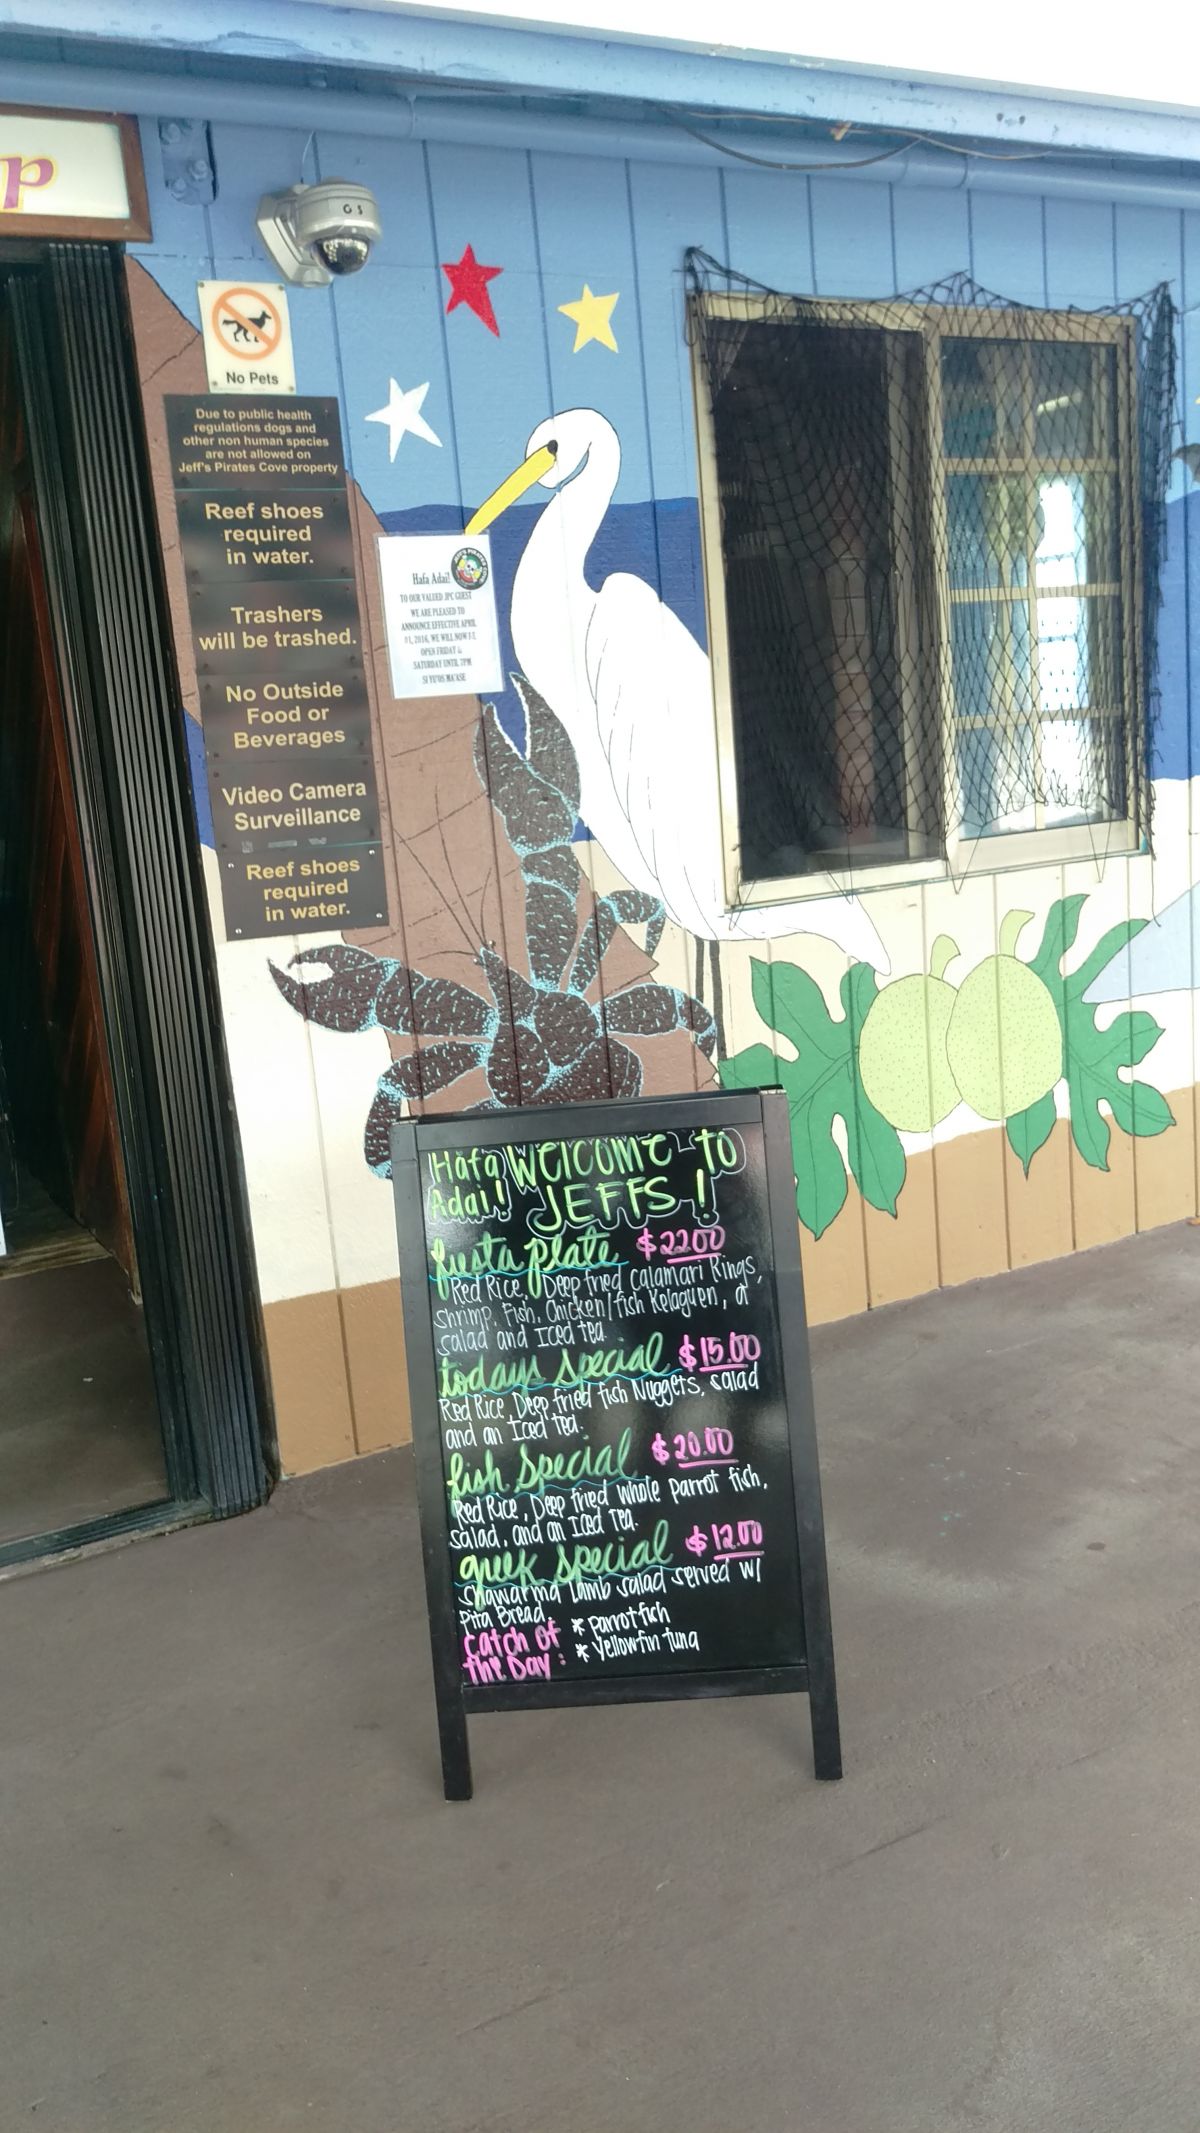 p
G S
No Pets
Due to public health
regulations dogs and
other non human species
are not allowed on
Jeff's Pirates Cove property
Reef shoes
required
in water.
Trashers
will be trashed.
No Outside
Food or
Beverages
Video Camera
Surveillance
Reef shoes
required
in water.
Hafa Adai!
TO OUR VALUED JPC GUEST
WE ARE PLEASED TO
ANNOUNCE EFFECTIVE APRIL
01, 2016, WE WILL NOW
OPEN FRIDAY &
SATURDAY UNTIL 7PM
SI YU'OS MA'ASE
Hafa Welcome to
Adai! JEFFS!
fiesta plate $22.00
Red Rice, Deep fried calamari Rings,
shrimp, Fish, Chicken/fish Kelaguen, a
salad and Iced tea.
todays special $15.00
Red Rice, Deep fried fish Nuggets, salad
and an Iced tea.
fish special $20.00
Red Rice, Deep fried whole parrot fish,
salad, and an Iced Tea.
greek special $12.00
Shawarma Lamb salad served w/
Pita Bread.
Catch of * parrotfish
the Day: * Yellowfin tuna